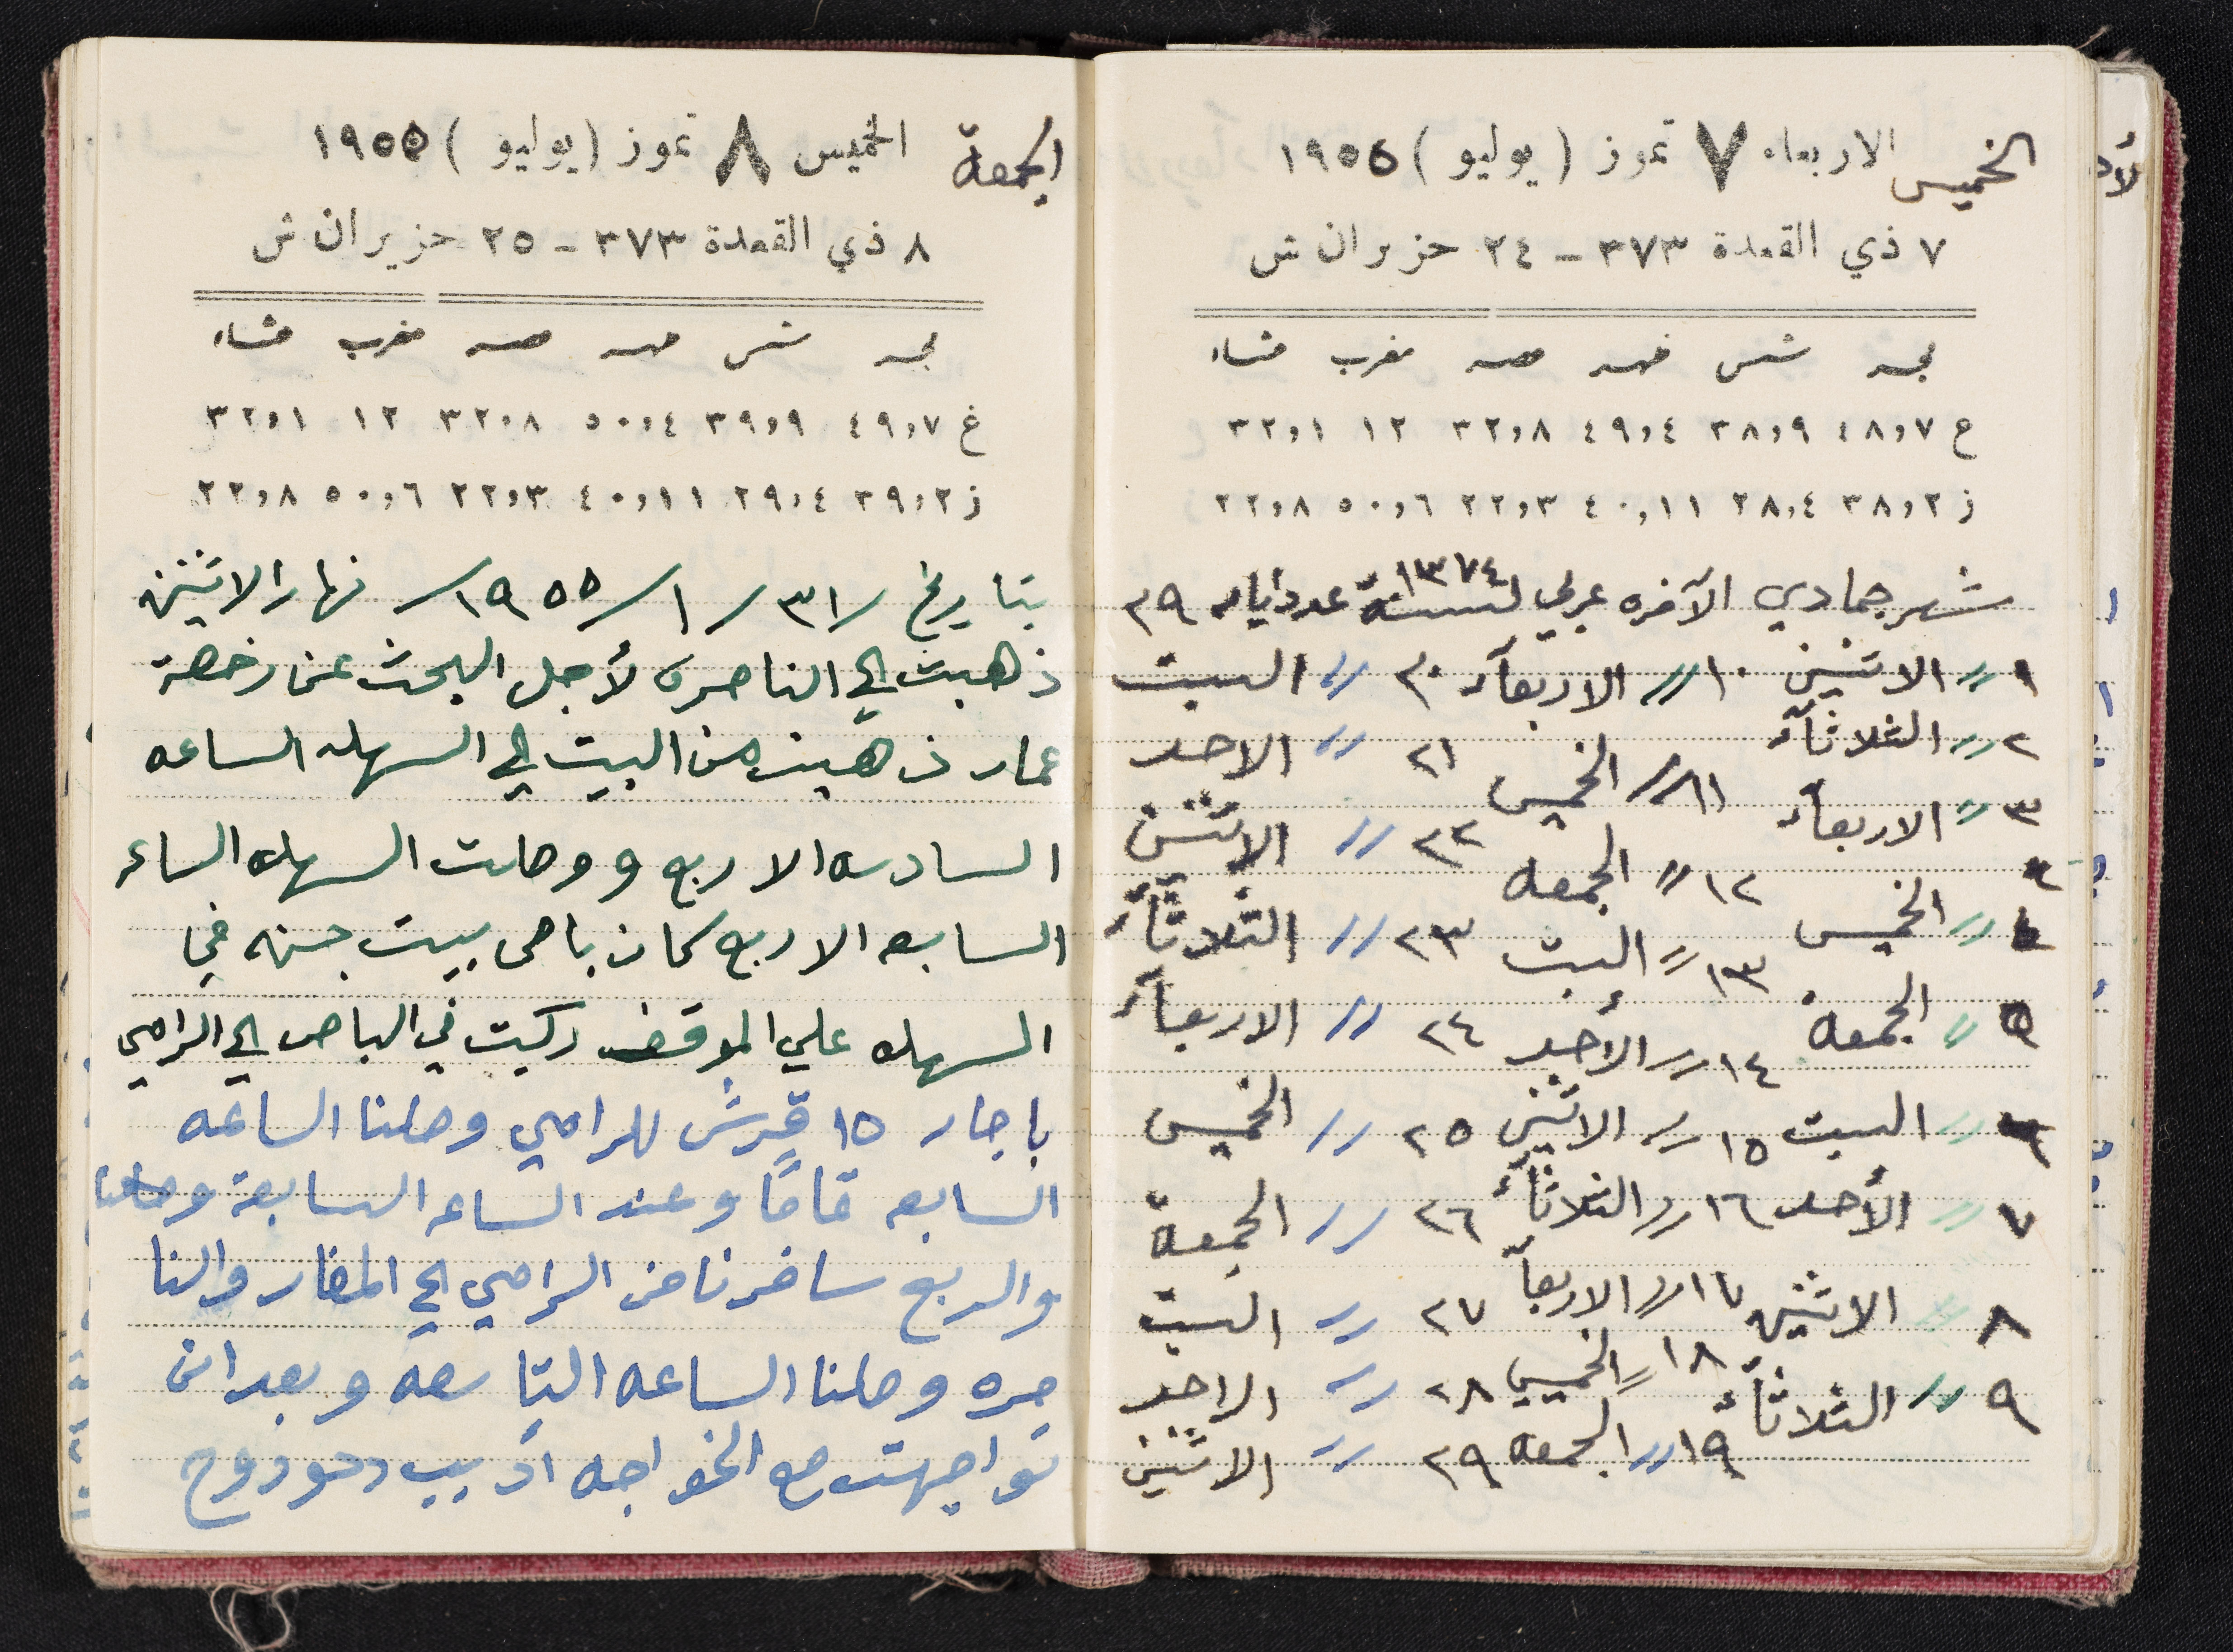 الخميس الاربعاء ٧ تموز (يوليو) ١٩٥٥
٧ ذي القعدة ٣٧٣ - ٢٤ حزيران ش
فجر شمس ظهر عصر مغرب عشاء
غ ٤٨,٧ ٣٨,٩ ٤٩,٤ ٣٢,٨ ١٢ ٣٢,١
ز ٣٨,٢ ٢٨,٤ ٤٠,١١ ٢٢,٣ ٥٠,٦ ٢٢,٨
شهر جمادي الآخره عربي لسنة ١٣٧٤ عدد ايامه ٢٩
١ // الاثنين ١٠ // الاربعآء ٢٠ // السبت
٢ // الثلاثآء ١١ // الخميس ٢١ // الاحد
٣ // الاربعآء ١٢ // الجمعه ٢٢ // الاثنين
٤ // الخميس ١٣ // السبت ٢٣ // الثلاثآء
٥ // الجمعة ١٤ // الأحد ٢٤ // الاربعآء
٦ // السبت ١٥ // الاثنين ٢٥ // الخميس
٧ // الأحد ١٦ // الثلاثآء ٢٦ // الجمعة
٨ // الاثنين ١٧ // الاربعآ ٢٧ // السبت
٩ // الثلاثآء ١٨ // الخميس ٢٨ // الاحد
١٩ // الجمعه ٢٩ // الاثنين
الجمعة الخميس ٨ تموز (يوليو) ١٩٥٥
٨ ذي القعدة ٣٧٣ - ٢٥ حزيران ش
فجر شمس ظهر عصر مغرب عشاء
غ ٤٩,٧ ٣٩,٩ ٥٠,٤ ٣٢,٨ ١٢ ٣٢,١
ز ٣٩,٢ ٢٩,٤ ٤٠,١١ ٢٢,٣ ٥٠,٦ ٢٢,٨
بتاريخ /٣١ /١ /١٩٥٥/ نهار الاثنين
ذهبت الي الناصره لأجل البحث عن رخصة
عمار ذهبت من البيت الي السهله الساعه
السادسه الا ربع و وصلت السهله الساعه
السابعه الا ربع كان باص بيت جنه في
السهله علي الموقف ركبت في الباص الي الرامي
باجار ١٥ قرش للرامي وصلنا الساعه
السابعه تمامًا وعند الساعه السابعة
والربع سافرنا من الرامي الي المغار والنا
صره وصلنا الساعه التاسعه وبعد ان
تواجهت مع الخواجه اديب